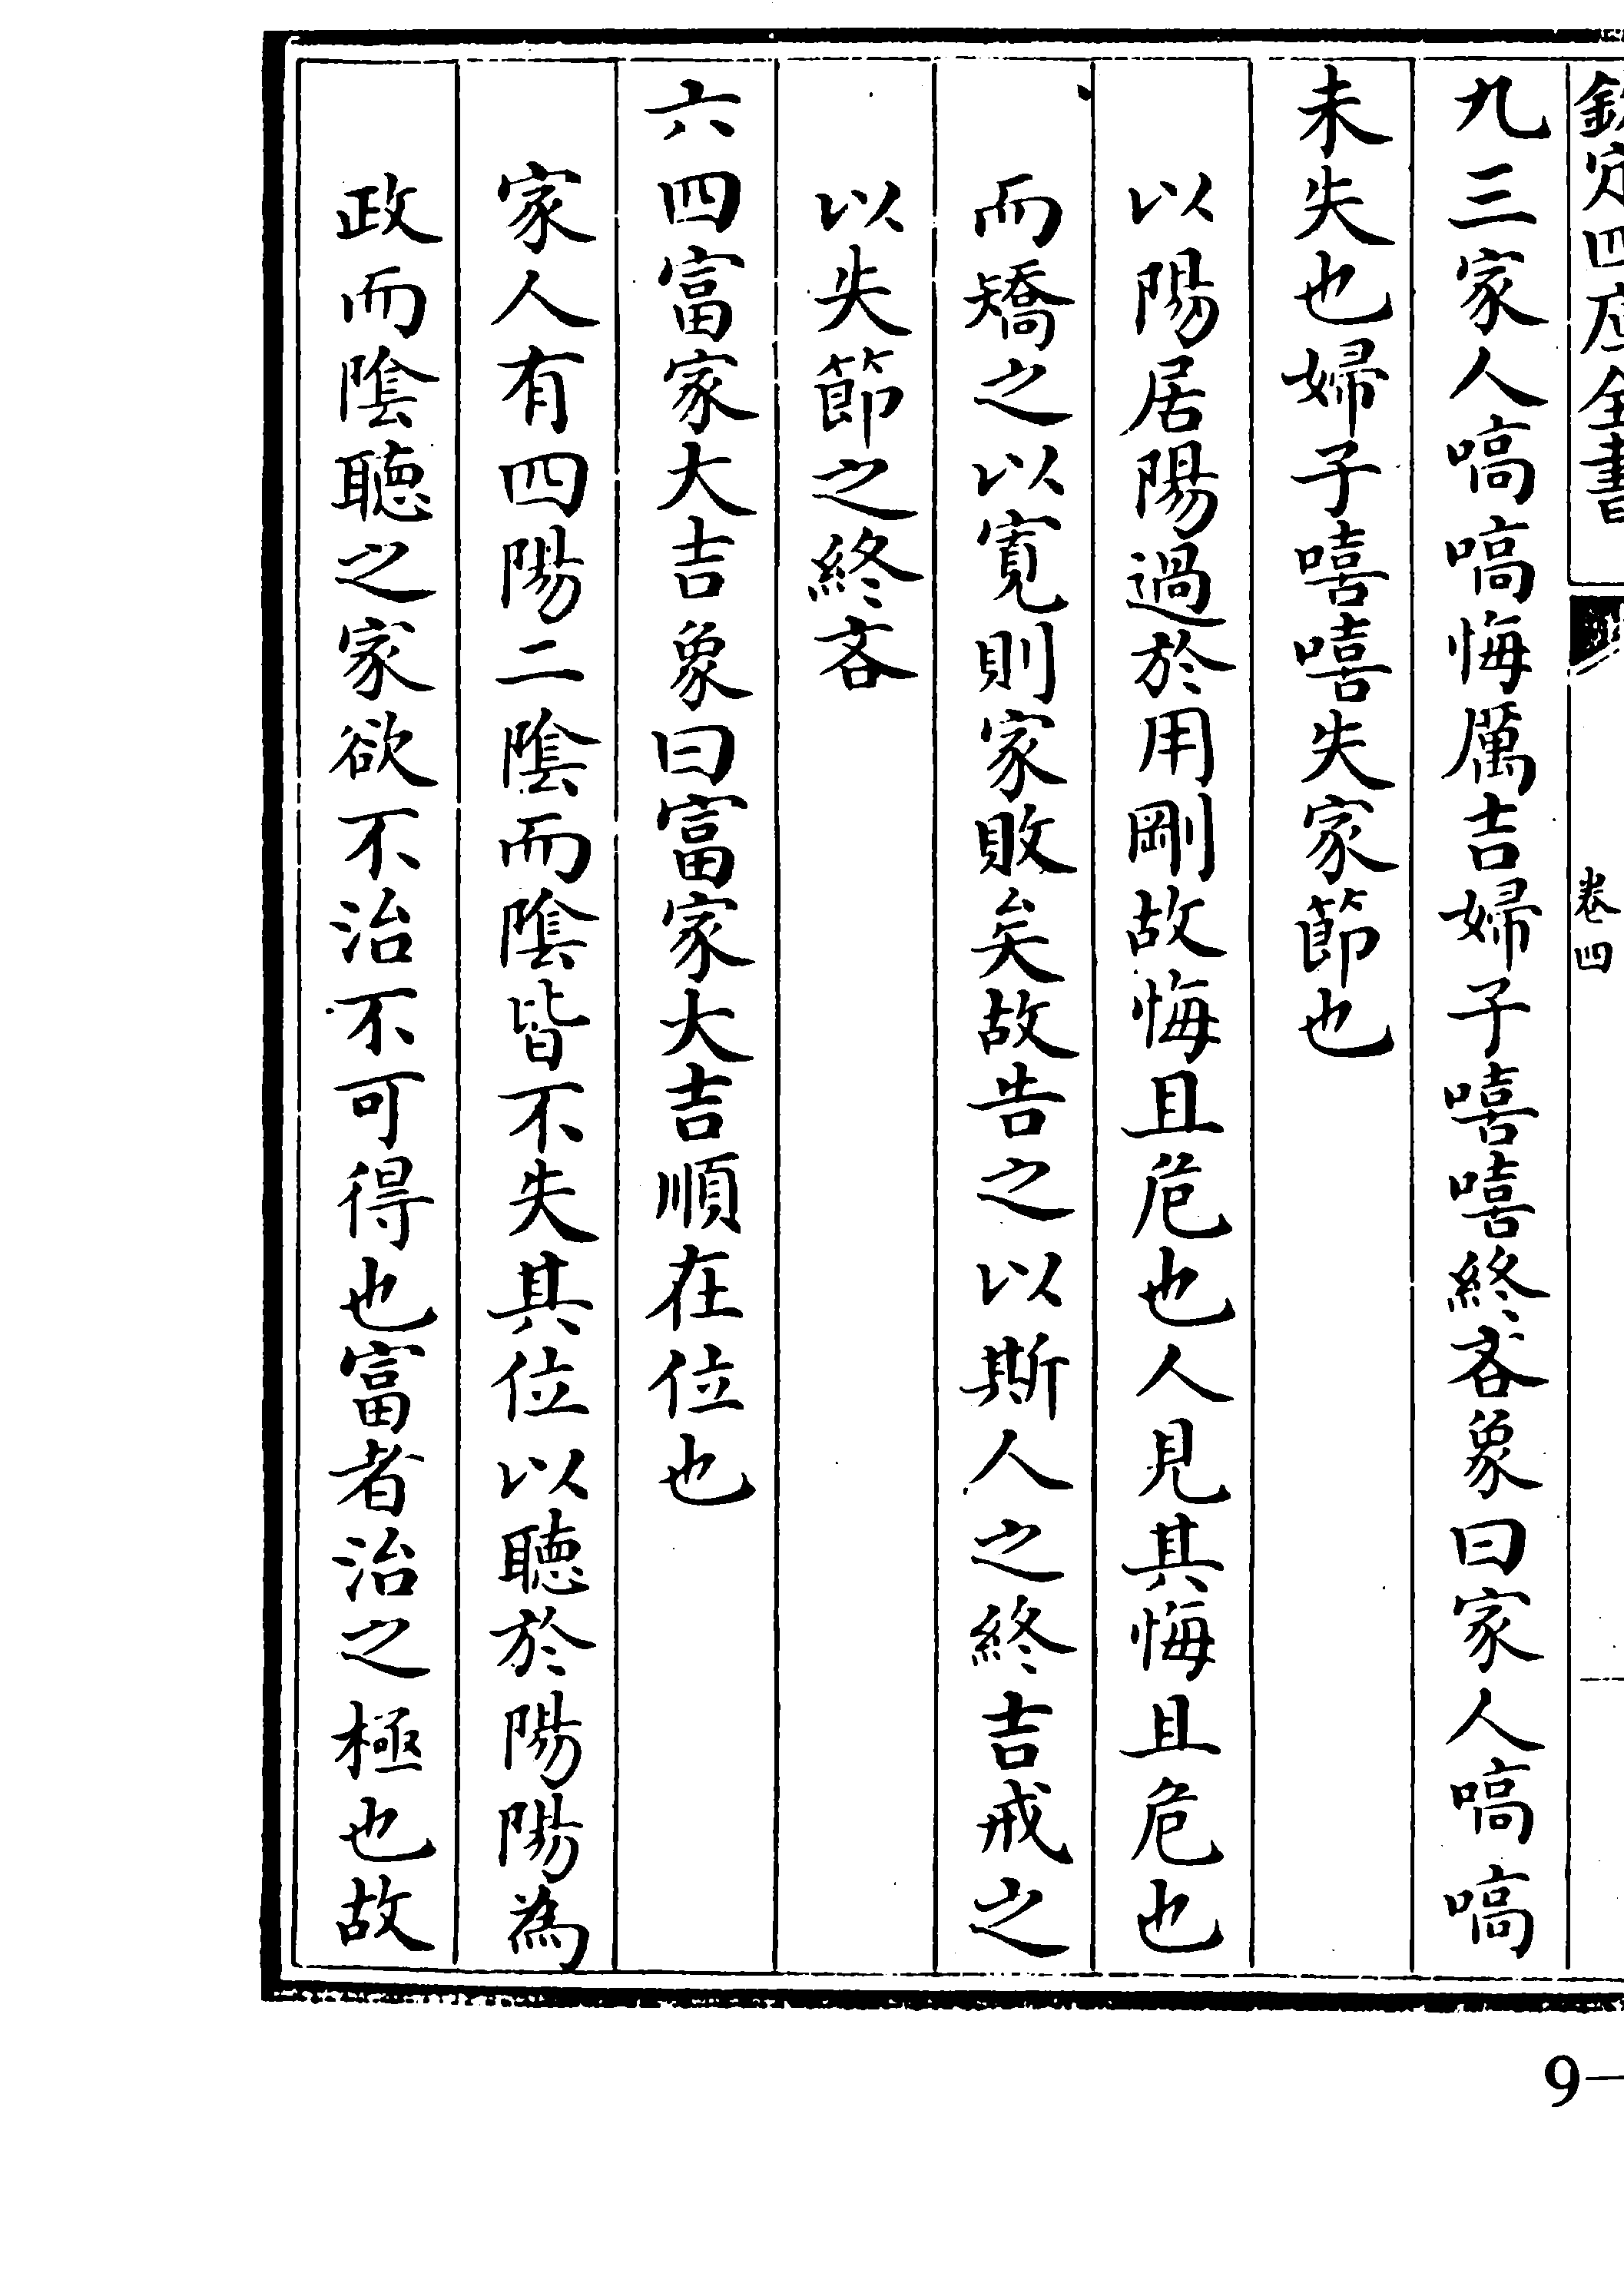 欽定四庫全書
卷四
九三家人嗃嗃悔厲吉婦子嘻嘻終吝象曰家人嗃嗃
未失也婦子嘻嘻失家節也
以陽居陽過於用剛故悔且危也人見其悔且危也
而矯之以寛則家敗矣故告之以斯人之終吉戒之
以失節之終吝
六四富家大吉象曰富家大吉順在位也
家人有四陽二陰而陰皆不失其位以聽於陽陽為
政而陰聽之家欲不治不可得也富者治之極也故
9